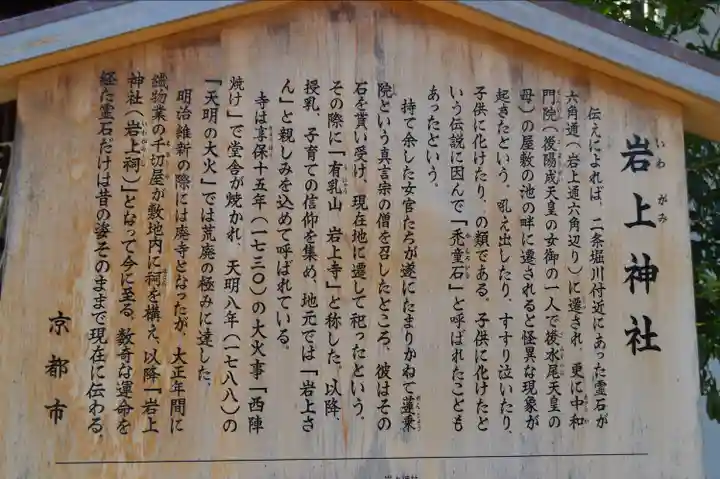 岩上神社
いわ がみ
伝えによれば、二条堀川付近にあった霊石が
六角道（岩上通六角辺り）に遷され、更に中和
門院（後陽成天皇の女御の一人で後水尾天皇の
母）の屋敷の池の畔に遷されると怪異な現象が
起きたという。吼え出したり、すすり泣いたり、
子供に化けたり、の類である。子供に化けたと
いう伝説に因んで「禿童石」と呼ばれたことも
あったという。
持て余した女官たちが遂にたまりかねて蓮乗
院という真言宗の僧を召したところ、彼はその
石を貰い受け、現在地に遷して祀ったという。
その際に「有乳山 岩上寺」と称した。以降、
授乳、子育ての信仰を集め、地元では「岩上さ
ん」と親しみを込めて呼ばれている。
寺は享保十五年（一七三〇）の大火事「西陣
焼け」で堂舎が焼かれ、天明八年（一七八八）の
「天明の大火」では荒廃の極みに達した。
明治維新の際には廃寺となったが、大正年間に
織物業の千切屋が敷地内に祠を構え、以降「岩上
神社（岩上祠）」となって今に至る。数奇な運命を
経た霊石だけは昔の姿そのままで現在に伝わる。
京都市